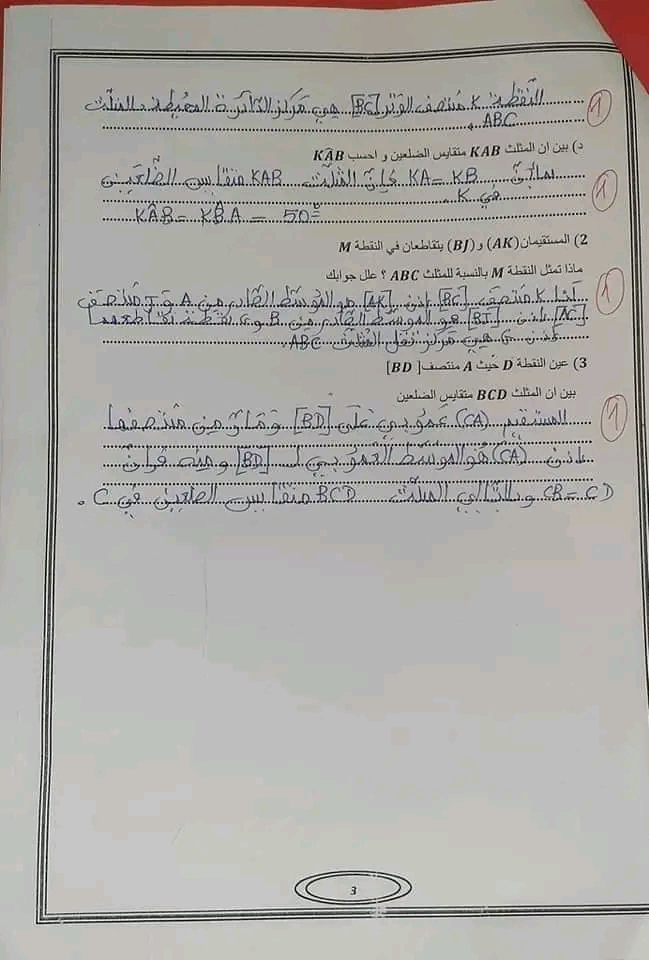 النقطة K منتصف الوتر [BC] هي مركز الدائرة المحيطة بالمثلث
ABC.
1
د) بين ان المثلث KAB متقايس الضلعين و احسب KÂB
بما أن KA = KB فإن المثلث KAB متقايس الضلعين
في K.
KÂB = KB̂A = 50°
1
2) المستقيمان (AK) و (BJ) يتقاطعان في النقطة M
ماذا تمثل النقطة M بالنسبة للمثلث ABC ؟ علل جوابك
لنا K منتصف [BC] إذن [AK] هو الموسط الصادر من A و J منتصف
[AC] إذن [BJ] هو الموسط الصادر من B و نقطة تقاطعهما
إذن هي مركز ثقل المثلث ABC.
1
3) عين النقطة D حيث A منتصف [BD]
بين ان المثلث BCD متقايس الضلعين
المستقيم (CA) عمودي على [BD] و مار من منتصفها
إذن (CA) هو الموسط العمودي لـ [BD] ومنه فإن
CB = CD وبالتالي المثلث BCD متقايس الضلعين في C.
1
3